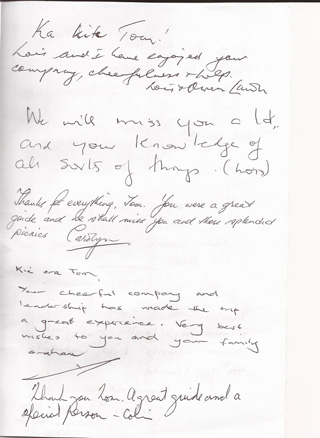 Ka kite Tom!
Lois and I have enjoyed your
company, cheerfulness & help.
Lois & Owen
We will miss you a lot,
and your knowledge of
all sorts of things.
Thanks for everything, Tom. You were a great
guide and we shall miss you and those splendid
picnics Carolyn
Kia ora Tom,
Your cheerful company and
leadership has made the trip
a great experience. Very best
wishes to you and your family
Graham
Thank you Tom. A great guide and a
special person - Colin